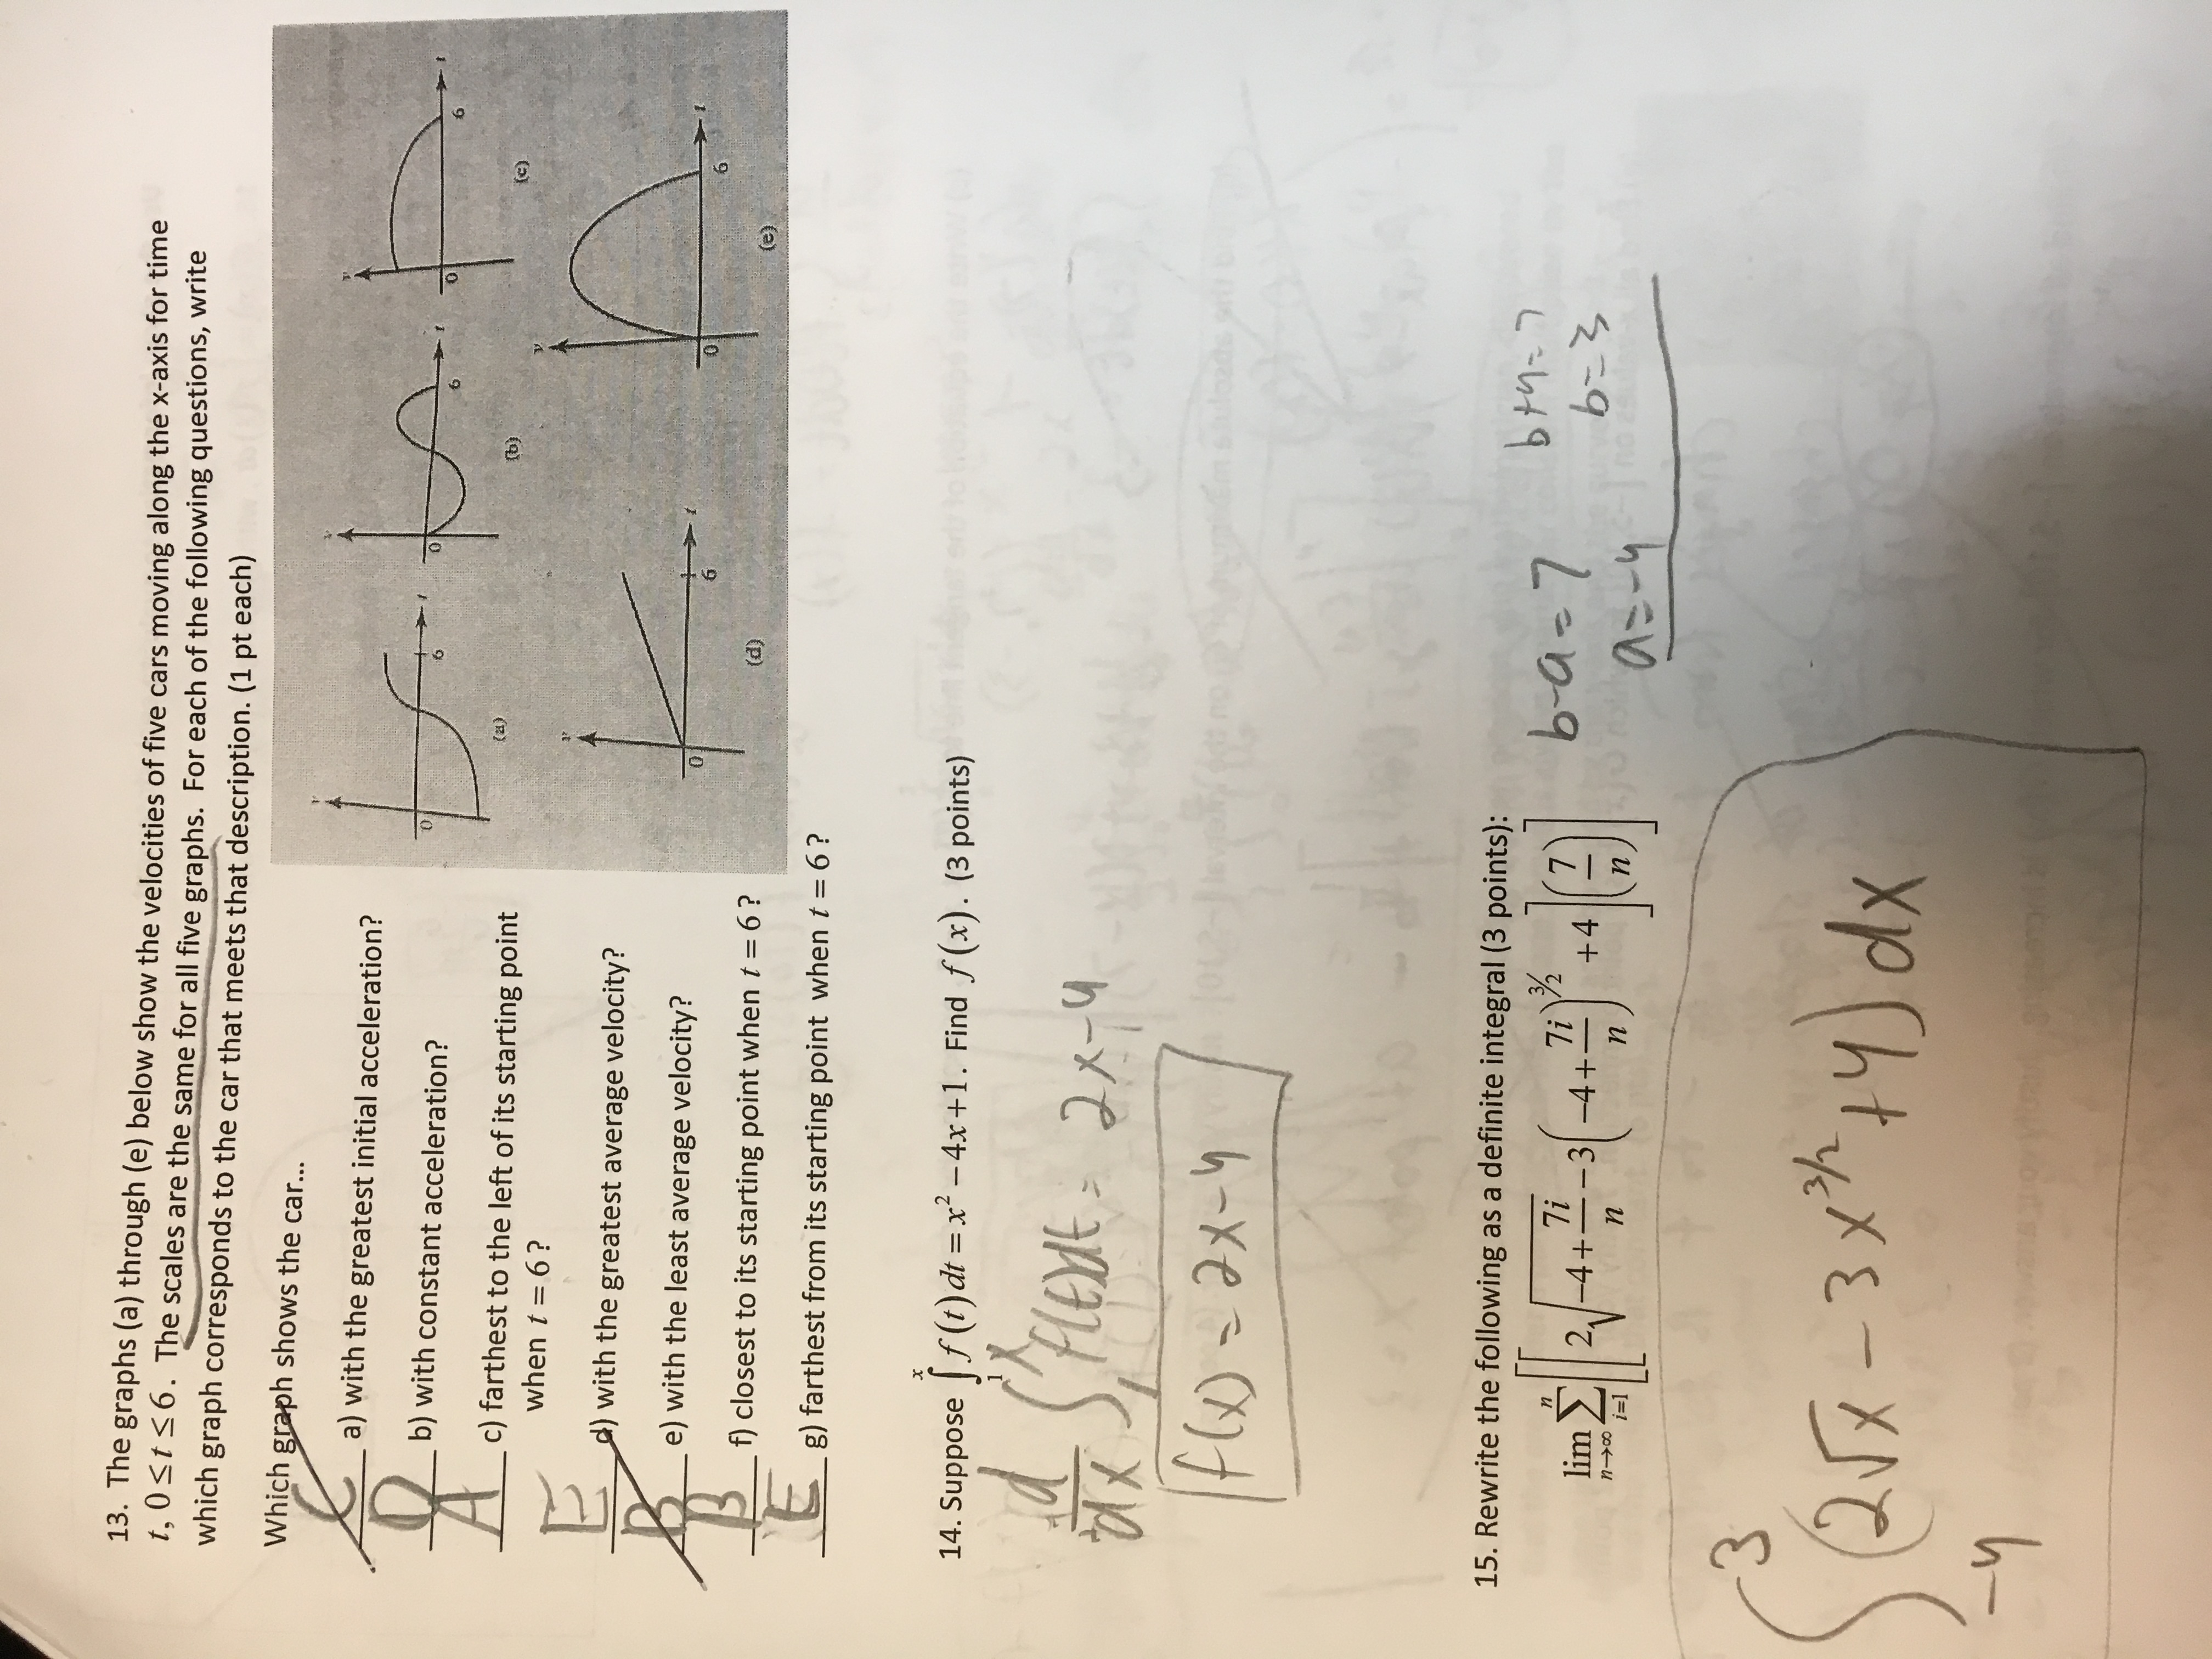 13. The graphs (a) through (e) below show the velocities of five cars moving along the x-axis for time
t, 0 ≤ t ≤ 6. The scales are the same for all five graphs. For each of the following questions, write
which graph corresponds to the car that meets that description. (1 pt each)
Which graph shows the car...
C a) with the greatest initial acceleration?
D b) with constant acceleration?
A c) farthest to the left of its starting point
when t = 6?
E d) with the greatest average velocity?
B e) with the least average velocity?
B f) closest to its starting point when t = 6?
E g) farthest from its starting point when t = 6?
v 0 6 t (a)
v 0 6 t (b)
v 0 6 t (c)
v 0 6 t (d)
v 0 6 t (e)
14. Suppose ∫₁ˣ f(t) dt = x² − 4x + 1. Find f(x). (3 points)
d/dx ∫₁ˣ f(t)dt = 2x − 4
f(x) = 2x − 4
15. Rewrite the following as a definite integral (3 points):
lim n→∞ Σ i=1 n [[2√(−4 + 7i/n) − 3(−4 + 7i/n)^(3/2) + 4](7/n)]
b − a = 7 b + 4 = 7
a = −4 b = 3
∫₋₄³ (2√x − 3x^(3/2) + 4) dx